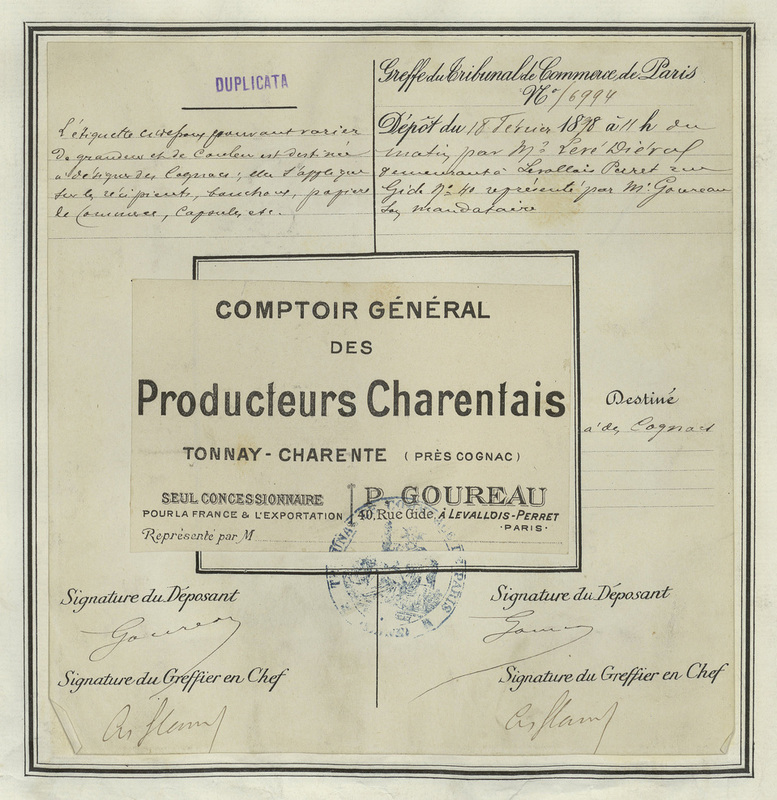 DUPLICATA
L'étiquette ci-dessous pouvant varier
de grandeur et de Couleur est destinée
à désigner des Cognacs; elle s'applique
sur les récipients, bouchons, papiers
de Commerce, Capsules, etc.
Greffe du Tribunal de Commerce de Paris
N°
Dépôt du 18 Février 1898 à 11 h du
matin par Mr Levé Diéval
demeurant à Levallois Perret rue
Gide No 40 représenté par Mr Goureau
son mandataire
COMPTOIR GÉNÉRAL
DES
Producteurs Charentais
TONNAY-CHARENTE (PRÈS COGNAC)
SEUL CONCESSIONNAIRE
POUR LA FRANCE & L'EXPORTATION
P. GOUREAU
40, Rue Gide, À LEVALLOIS-PERRET
·PARIS·
Représenté par M
Destiné
à des Cognacs
Signature du Déposant
Goureau
Signature du Greffier en Chef
Signature du Déposant
Signature du Greffier en Chef